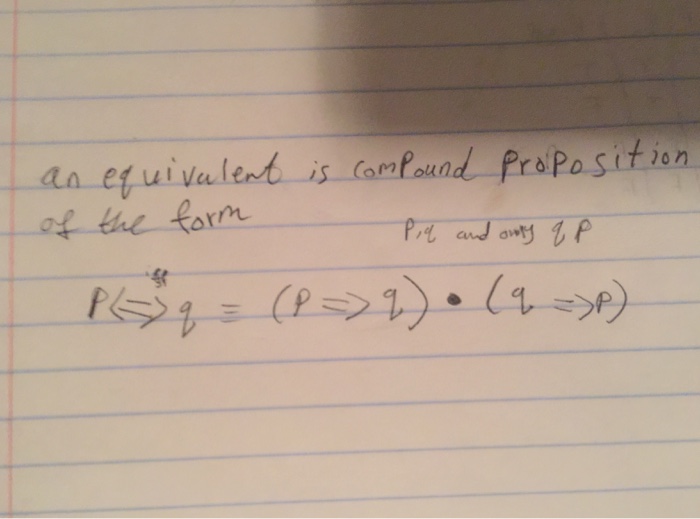 an equivalent is compound proposition
of the form
P,q and only q P
iff
P <=> q = (P => q) • (q => P)